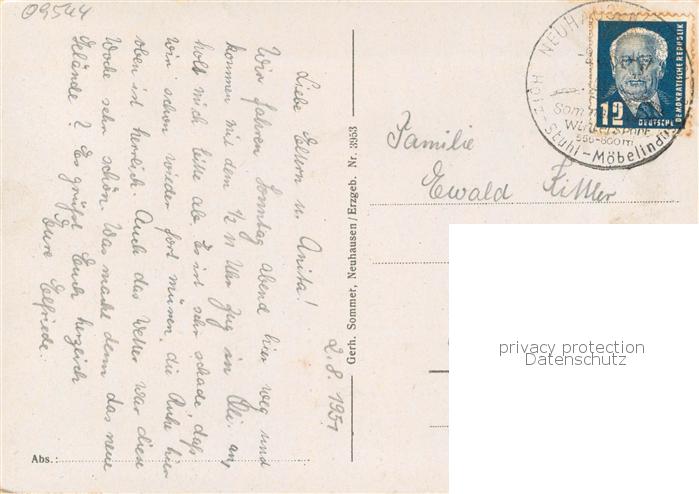 09544
2. 8. 1951
Liebe Eltern u. Anita!
Wir fahren Sonntag abend hier weg und
kommen mit dem ½ 11 Uhr Zug in Ol. an,
holt mich bitte ab. Es ist sehr schade, daß
wir schon wieder fort müssen, die Ruhe hier
oben ist herrlich. Auch das Wetter war diese
Woche sehr schön. Was macht denn das neue
Gelände? Es grüßt Euch herzlich
Eure Elfriede.
Abs.:
Gerh. Sommer, Neuhausen/Erzgeb. Nr. 3953
NEUHAUSEN
Wintersport
-Stuhl-Möbelindu
12
DEUTSCHE
DEMOKRATISCHE REPUBLIK
Familie
Ewald
privacy protection
Datenschutz